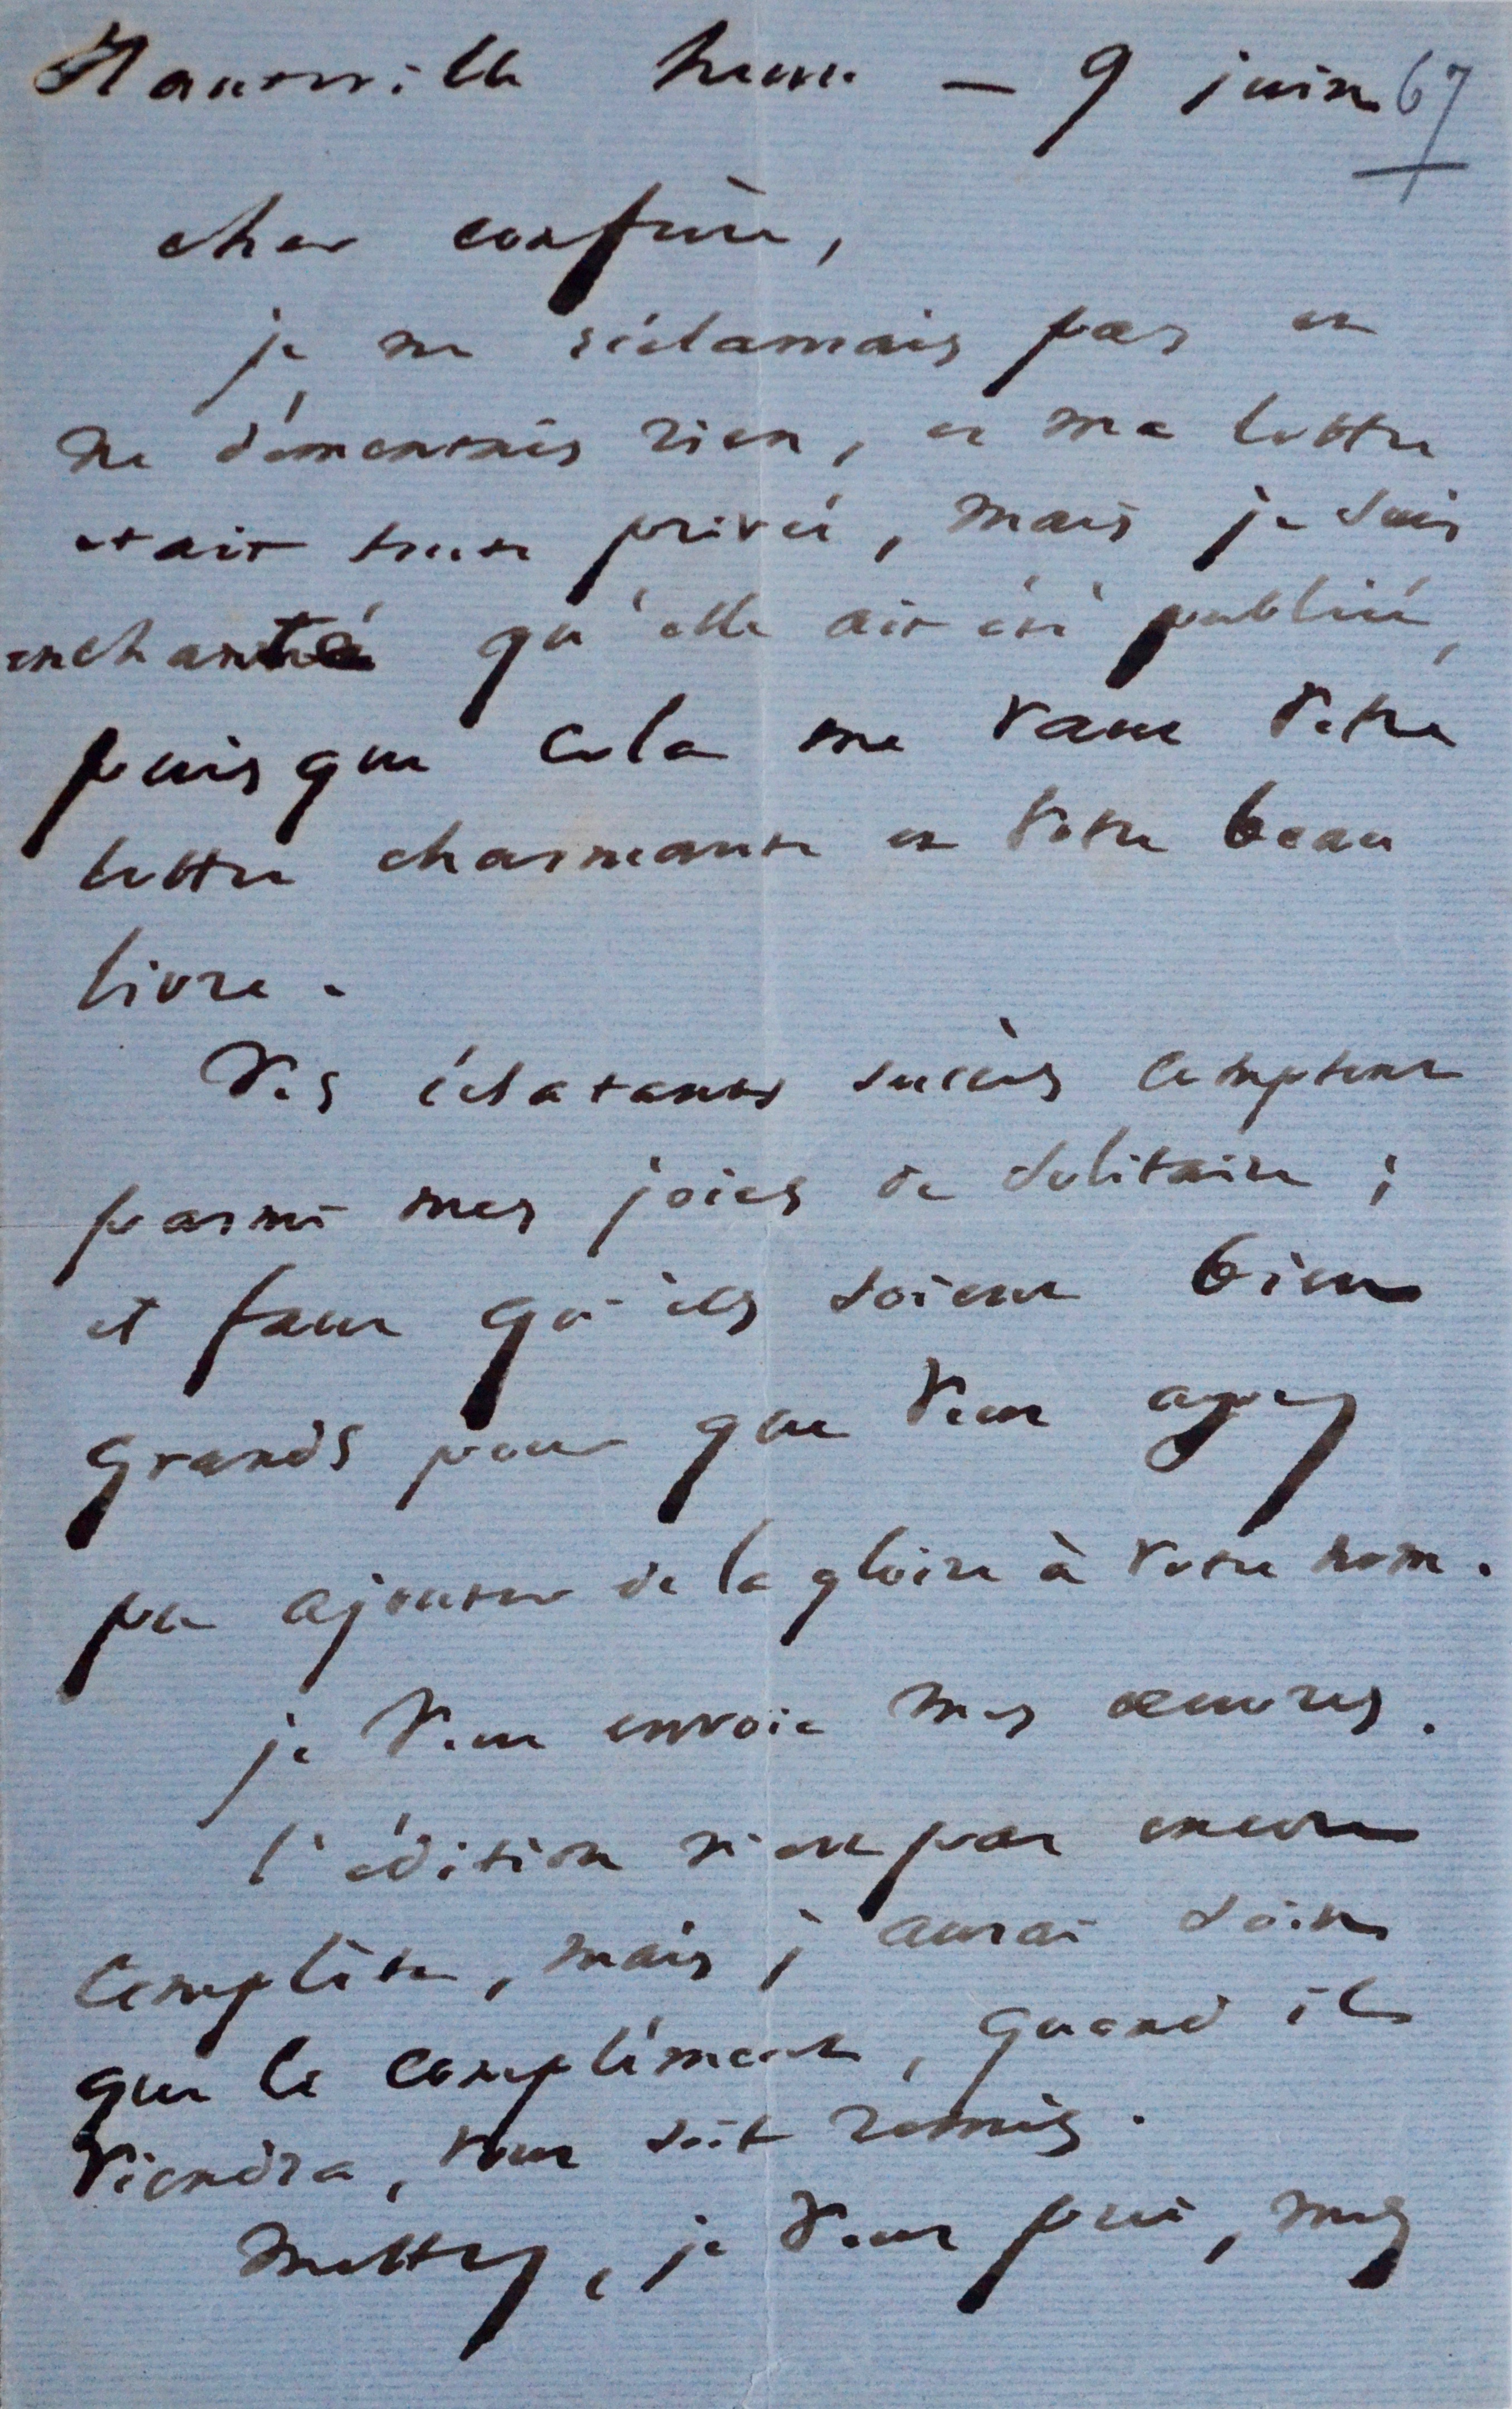 Hauteville house — 9 juin 67
cher confrère,
je ne réclamais pas et
ne démentais rien, et ma lettre
etait toute privée, mais je suis
enchanté qu'elle ait été publiée,
puisque cela me vaut votre
lettre charmante et votre beau
livre.
Vos éclatants succès comptent
parmi mes joies de solitaire ;
et faut qu'ils soient bien
grands pour que vous ayez
pu ajouter de la gloire à votre nom.
je vous envoie mes œuvres.
l'édition n'est pas encore
complète, mais j'aurai soin
que le complément, quand il
viendra, vous soit remis.
Mettez, je vous prie, mes